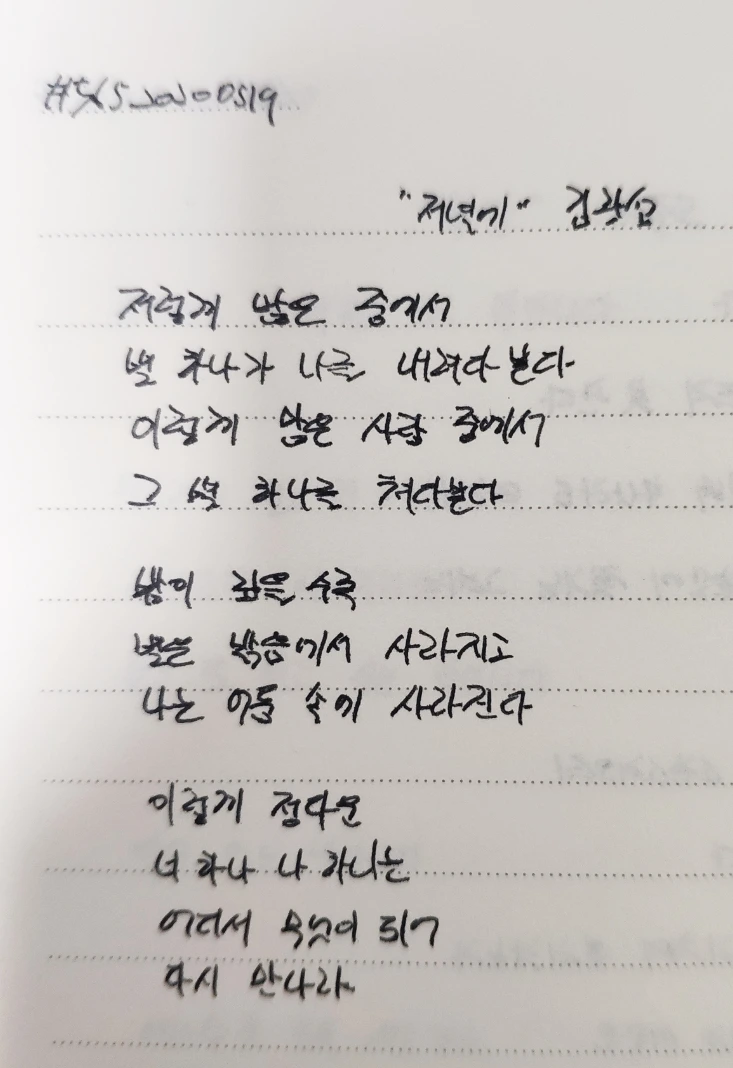 "저녁에" 김광섭
저렇게 많은 중에서
별 하나가 나를 내려다 본다
이렇게 많은 사람 중에서
그 별 하나를 쳐다본다
밤이 깊을 수록
별은 밝음에서 사라지고
나는 어둠 속에 사라진다
이렇게 정다운
너 하나 나 하나는
어디서 무엇이 되어
다시 만나랴